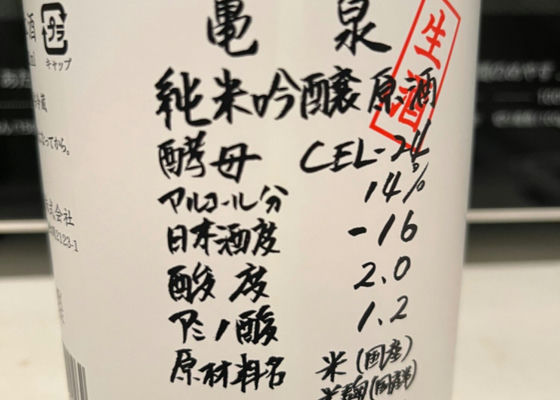 亀泉
生酒
純米吟醸原酒
酵母 CEL-24
アルコール分 14%
日本酒度 -16
酸度 2.0
アミノ酸 1.2
原材料名 米(国産)
米麹(国産米)
キャップ